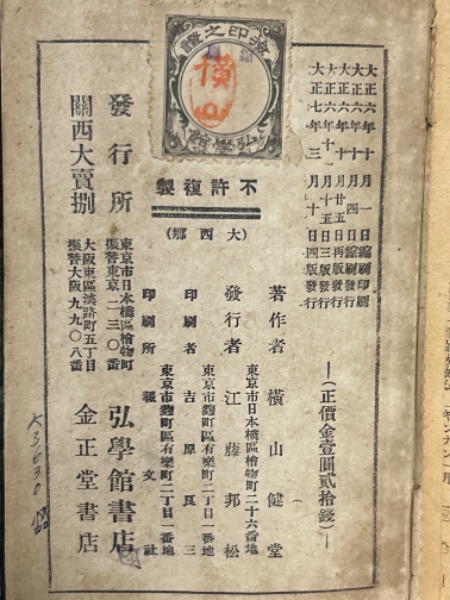 大正六年十月一日縮刷印刷
大正六年十月四日縮刷發行
大正六年十月廿五日再版發行
大正六年十一月十五日三版發行
大正七年三月十日四版發行
檢印之證
橫山
弘學館
不許複製
(大西鄕)
(正價金壹圓貳拾錢)
著作者 橫山健堂
東京市日本橋區檜物町二十六番地
發行者 江藤邦松
東京市麴町區有樂町二丁目一番地
印刷者 吉原良三
東京市麴町區有樂町二丁目一番地
印刷所 報文社
發行所
東京市日本橋區檜物町
振替東京二一三〇番
弘學館書店
關西大賣捌
大阪東區淡路町五丁目
振替大阪九九〇八番
金正堂書店